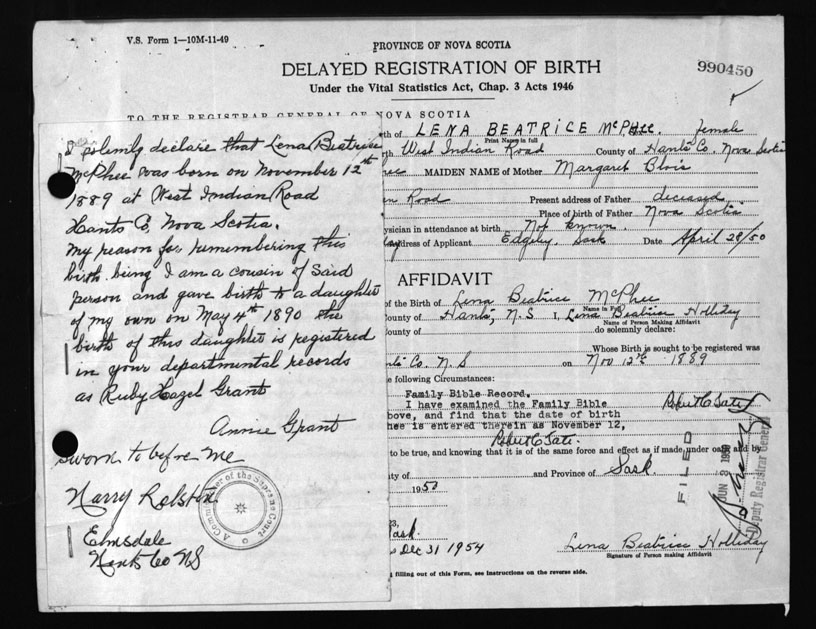 V.S. Form 1—10M-11-49
PROVINCE OF NOVA SCOTIA
990450
DELAYED REGISTRATION OF BIRTH
Under the Vital Statistics Act, Chap. 3 Acts 1946
TO THE REGISTRAR GENERAL OF NOVA SCOTIA
I solemnly declare that Lena Beatrice
McPhee was born on November 12th
1889 at West Indian Road
Hants Co, Nova Scotia.
My reason for remembering this
birth being I am a cousin of said
person and gave birth to a daughter
of my own on May 4th 1890 the
birth of this daughter is registered
in your departmental records
as Ruby Hazel Grant
Annie Grant
Sworn to before me
Harry Ralston
Elmsdale
Hants Co NS
A Commissioner of the Supreme Court
th of LENA BEATRICE McPhee. female
Print Name in full
th West Indian Road County of Hants Co. Nova Scotia
MAIDEN NAME of Mother Margaret Blois
n Road Present address of Father deceased
Place of birth of Father Nova Scotia
ysician in attendance at birth Not known.
address of Applicant Edgeley, Sask Date April 28/50
AFFIDAVIT
of the Birth of Lena Beatrice McPhee
Name in Full
ounty of Hants, N.S I, Lena Beatrice Holliday
Name of Person Making Affidavit
ounty of do solemnly declare:
Whose Birth is sought to be registered was
Co. N.S on Nov 12th 1889
e following Circumstances:
Family Bible Record.
I have examined the Family Bible
bove, and find that the date of birth
hee is entered therein as November 12,
to be true, and knowing that it is of the same force and effect as if made under oath and by
ty of and Province of Sask
1950
FILED
JUN 3 1950
Deputy Registrar General
Sask.
Dec 31 1954
Lena Beatrice Holliday
Signature of Person making Affidavit
filling out of this Form, see Instructions on the reverse side.